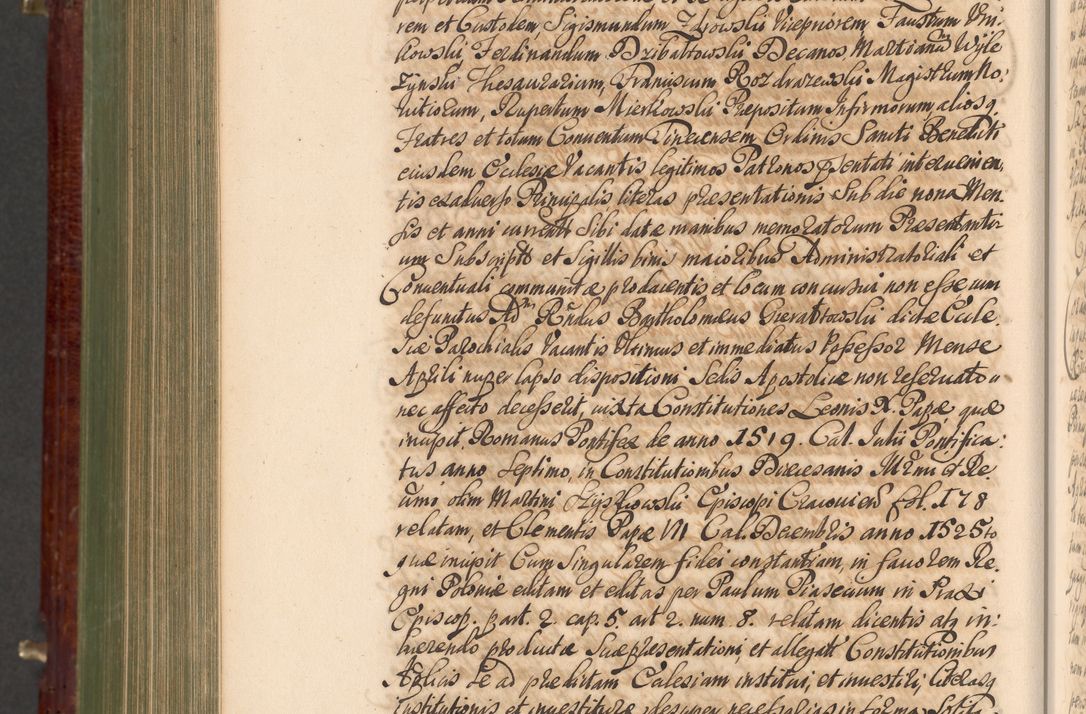 rem et Custodem, Sigismundum Zdrowskii Vicepriorem, Faustum Wri-
kowskii Ferdinandum Dzibałtowskii Decanos, Martianum Wyle
zynskii Thesaurarium, Franciscum Rozdrazewskii Magistrum No,
uitiorum, Rupertum Mierkowskii Prepositum Infirmorum aliosq
Fratres et totum Conuentum Tinecensem Ordinis Sancti Benedicti
eiusdem Ecclesiæ Vacantis legitimos Patronos pñtati interuenien,
tis ex aduerso Principalis literas præsentationis sub die nona Men,
sis et anni currentis sibi datæ manibus memoratorum Præsentanti
um Subscriptis et Sigillis binis maioribus Administratoriali et
Conuentuali communitæ producentis et locum concursui non esse cum
defunctus Adm Rñdus Bartholomæus Gierałtowskii dictæ Eccle,
siæ Parochialis Vacantis Vltimus et immediatus Possessor Mense
Aprili nuper lapso dispositioni Sedis Apostolicæ non reseruato
nec affecto decesserit, iuxta Constitutiones Leonis X. Papæ quæ
incipit Romanus Pontifex de anno 1519. Cal. Julii Pontifica:
tus anno Septimo, in Constitutionibus Diœcesanis Illrmi et Re
ũmi olim Martini Szyszkowskii Episcopi Cracouien fol. 178
relatam, et Clementis Papæ VII Cal. Decembris anno 1525to
quæ incipit Cum Singularem fidei constantiam, in fauorem Re,
gni Poloniæ editam et editas per Paulum Piasecium in Praxi
Episcop. part. 2. cap. 5 art 2. num. 8. relatam dicentis atq in:
hærendo productæ suæ præsentationi, et allegatis Constitutionibus
Aplicis se ad prædictam Ecclesiam institui, et inuestiri, literasq
Institutionis et inuestituræ desuper necessarias in forma solita